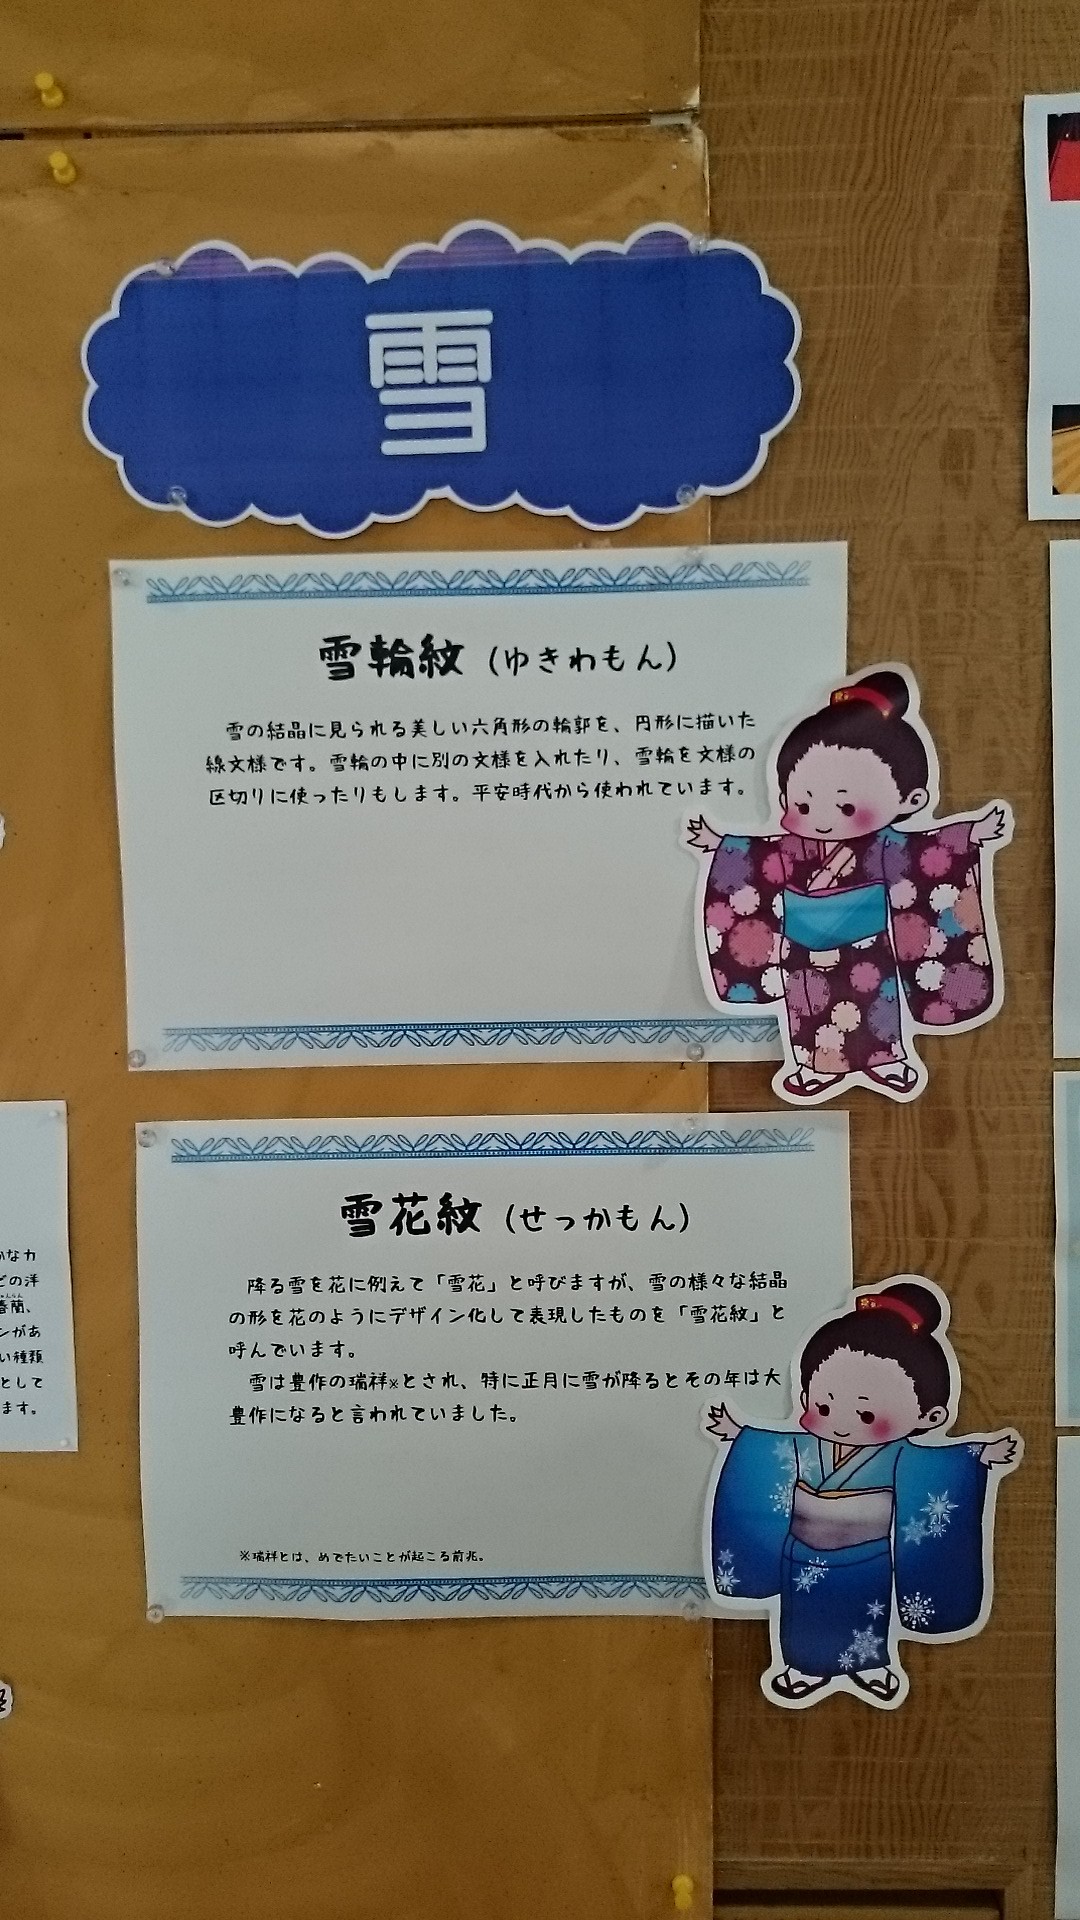 雪
雪輪紋（ゆきわもん）
雪の結晶に見られる美しい六角形の輪郭を、円形に描いた
線文様です。雪輪の中に別の文様を入れたり、雪輪を文様の
区切りに使ったりもします。平安時代から使われています。
雪花紋（せっかもん）
降る雪を花に例えて「雪花」と呼びますが、雪の様々な結晶
の形を花のようにデザイン化して表現したものを「雪花紋」と
呼んでいます。
雪は豊作の瑞祥※とされ、特に正月に雪が降るとその年は大
豊作になると言われていました。
※瑞祥とは、めでたいことが起こる前兆。
かなカ
どの洋
春蘭、
ンがあ
い種類
として
ます。